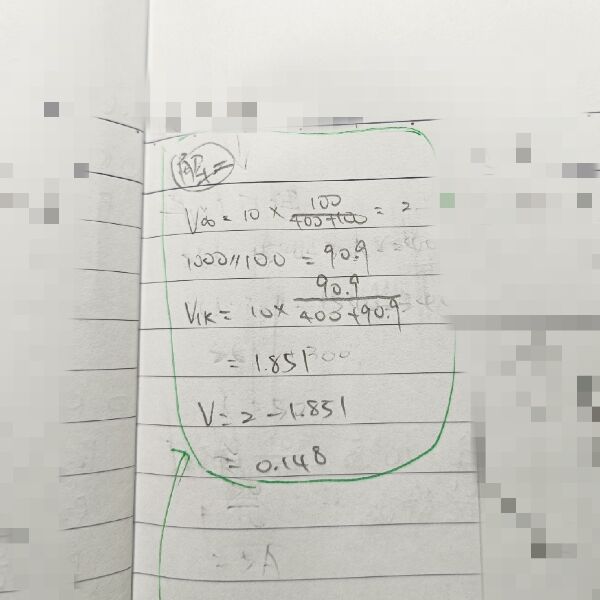 解=
V∞ = 10 × 100/(400+100) = 2
1000//100 = 90.9
V1K = 10 × 90.9/(400+90.9)
= 1.851
V = 2 - 1.851
= 0.148